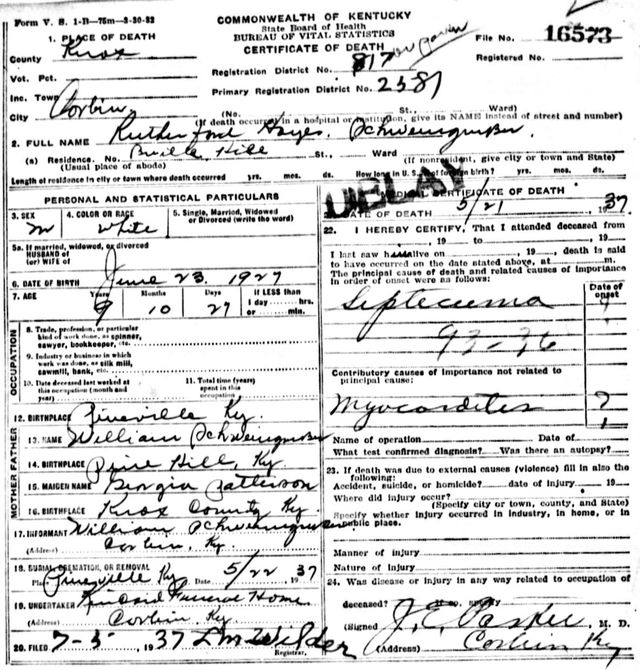 Form V. S. 1-B—75m—3-30-32
COMMONWEALTH OF KENTUCKY
State Board of Health
BUREAU OF VITAL STATISTICS
CERTIFICATE OF DEATH
File No. 16573
Registered No.
1. PLACE OF DEATH
County Knox
Vot. Pct.
Inc. Town
City Corbin
Registration District No. 817
Primary Registration District No. 2381
(No. St., Ward)
(If death occurred in a hospital or institution, give its NAME instead of street and number)
2. FULL NAME Rutherford Hayes Schweingruber
(a) Residence. No. Hill St., Ward
(Usual place of abode) (If nonresident, give city or town and State)
Length of residence in city or town where death occurred yrs. mos. ds. How long in U. S. if of foreign birth? yrs. mos. ds.
DELAY
PERSONAL AND STATISTICAL PARTICULARS
3. SEX M
4. COLOR OR RACE White
5. Single, Married, Widowed or Divorced (write the word)
5a. If married, widowed, or divorced
HUSBAND of
(or) WIFE of
6. DATE OF BIRTH June 23, 1927
7. AGE Years 9 Months 10 Days 27 If LESS than 1 day hrs. or min.
OCCUPATION
8. Trade, profession, or particular
kind of work done, as spinner,
sawyer, bookkeeper, etc.
9. Industry or business in which
work was done, as silk mill,
sawmill, bank, etc.
10. Date deceased last worked at
this occupation (month and
year)
11. Total time (years)
spent in this
occupation
12. BIRTHPLACE Pineville Ky.
MOTHER FATHER
13. NAME William Schweingruber
14. BIRTHPLACE Pine Hill, Ky
15. MAIDEN NAME Georgia Patterson
16. BIRTHPLACE Knox County Ky.
17. INFORMANT William Schweingruber
(Address) Corbin, Ky.
18. BURIAL, CREMATION, OR REMOVAL
Place Pineville Ky Date 5/22 1937
19. UNDERTAKER Funeral Home
(Address) Corbin Ky.
20. FILED 7-5 1937 Wilder
Registrar.
MEDICAL CERTIFICATE OF DEATH
DATE OF DEATH 5/21 1937
22. I HEREBY CERTIFY, That I attended deceased from
, 19 to , 19
I last saw h alive on , 19 death is said
to have occurred on the date stated above, at m.
The principal cause of death and related causes of importance
in order of onset were as follows:
Date of onset
Septecemia ?
93-36
Contributory causes of importance not related to
principal cause:
Myocarditis ?
Name of operation Date of
What test confirmed diagnosis? Was there an autopsy?
23. If death was due to external causes (violence) fill in also the
following:
Accident, suicide, or homicide? date of injury 19
Where did injury occur?
(Specify city or town, county, and State)
Specify whether injury occurred in industry, in home, or in
public place.
Manner of injury
Nature of injury
24. Was disease or injury in any way related to occupation of
deceased? If so, specify
(Signed J. E. Parker, M. D.
(Address) Corbin Ky